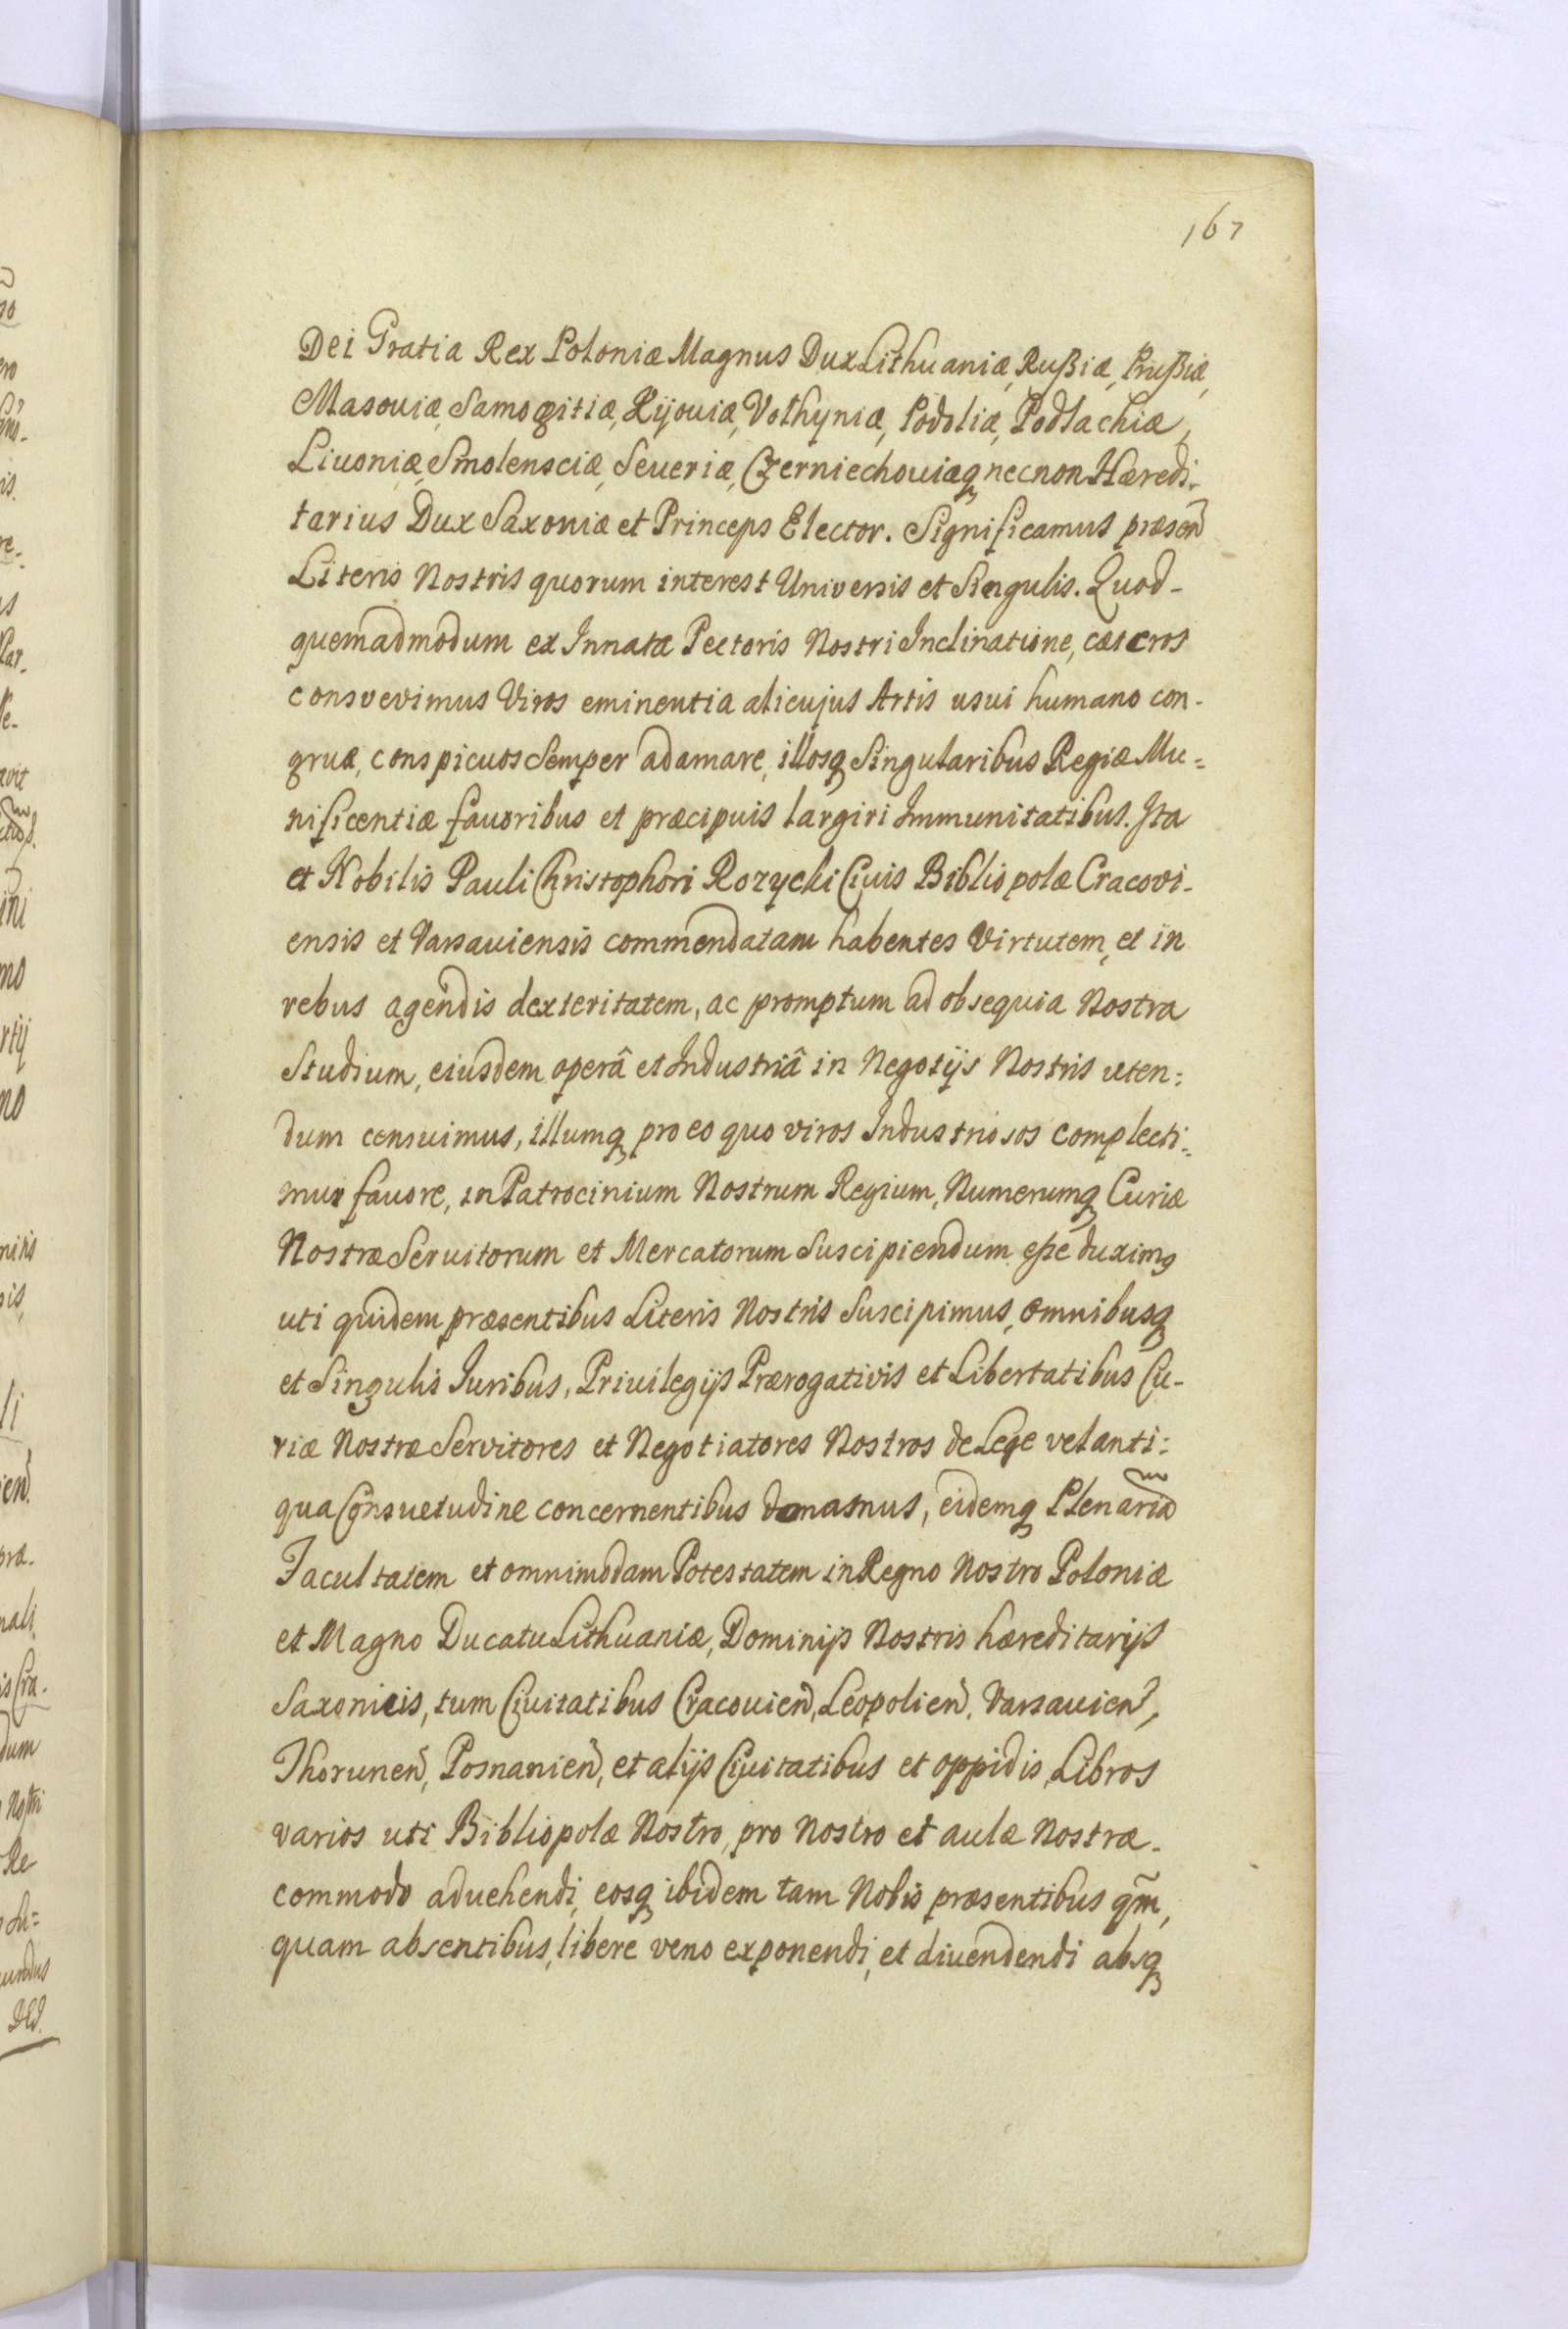 167
Dei Gratia Rex Poloniæ Magnus Dux Lithuaniæ, Rußiæ, Prußiæ,
Masouiæ, Samogitiæ, Kijouiæ, Volhyniæ, Podoliæ, Podlachiæ,
Liuoniæ, Smolensciæ, Seueriæ, Czerniechouiæq necnon Hæredi-
tarius Dux Saxoniæ et Princeps Elector. Significamus præsen̄
Literis Nostris quorum interest Universis et Singulis. Quod-
quemadmodum ex Innata Pectoris Nostri Inclinatione, cæteros
consvevimus Viros eminentia alicujus Artis usui humano con-
gruæ, conspicuos Semper adamare, illosq Singularibus Regiæ Mu=
nificentiæ fauoribus et præcipuis largiri Immunitatibus. Ita
et Nobilis Pauli Christophori Rozycki Ciuis Bibliopolæ Cracovi-
ensis et Varsauiensis commendatam habentes Virtutem, et in
rebus agendis dexteritatem, ac promptum ad obsequia Nostra
Studium, eiusdem operâ et Industriâ in Negotijs Nostris uten=
dum censuimus, illumq pro eo quo viros Industriosos complecti=
mur fauore, in Patrocinium Nostrum Regium, Numerumq Curiæ
Nostræ Seruitorum et Mercatorum Suscipiendum eße duximꝰ
uti quidem præsentibus Literis Nostris Suscipimus, omnibusq
et Singulis Juribus, Priuilegijs Prærogativis et Libertatibus Cu-
riæ Nostræ Servitores et Negotiatores Nostros de Lege vel anti=
qua Consuetudine concernentibus donamus, eidemq Plenariā
Facultatem et omnimodam Potestatem in Regno Nostro Poloniæ
et Magno Ducatu Lithuaniæ, Dominijs Nostris hæreditarijs
Saxonicis, tum Ciuitatibus Cracouien̄, Leopolien̄, Varsauien̄,
Thorunen̄, Posnanien̄, et alijs Ciuitatibus et oppidis, Libros
varios uti Bibliopolæ Nostro, pro Nostro et aulæ Nostræ-
commodo aduehendi, eosq ibidem tam Nobis præsentibus qm̃,
quam absentibus, libere veno exponendi, et diuendendi absq